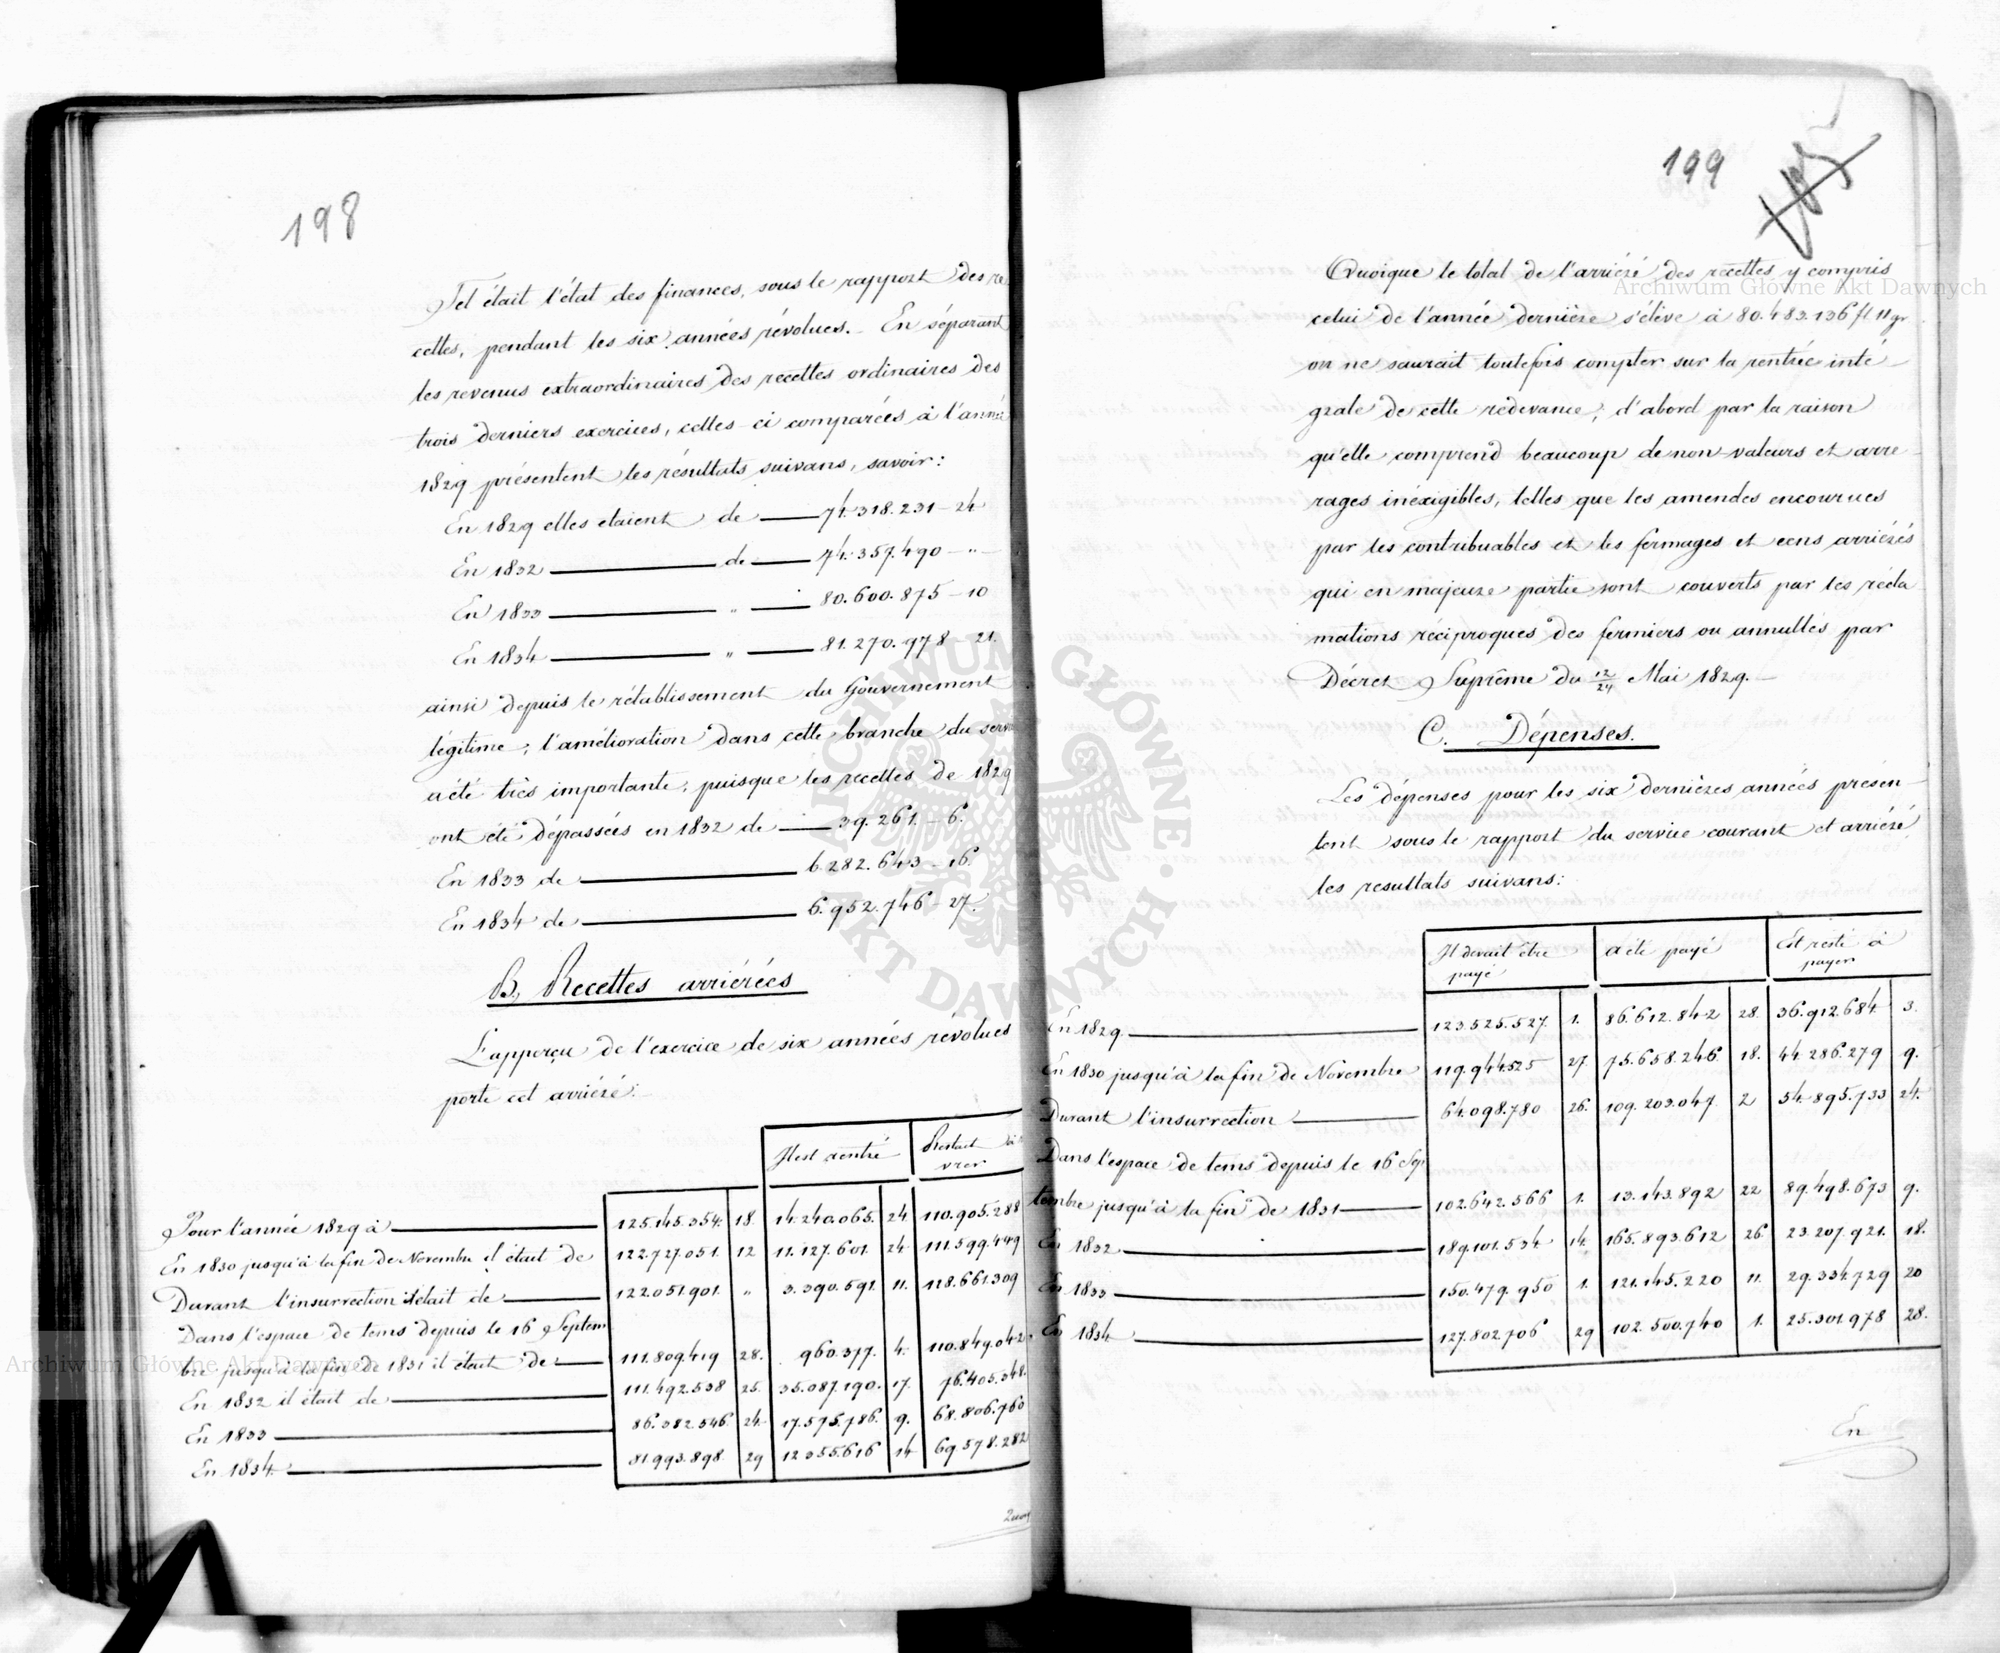 198
Tel était l'état des finances, sous le rapport des re
cettes, pendant les six années révolues. En séparant
les revenus extraordinaires des recettes ordinaires des
trois derniers exercices, celles-ci comparées à l'année
1829 présentent les résultats suivans, savoir:
En 1829 elles etaient de 74.318.231 - 24
En 1832 de 74.357.490 - " -
En 1833 " 80.600.875 - 10
En 1834 " 81.270.978 - 21.
ainsi depuis le rétablissement du Gouvernement
légitime, l'amélioration dans cette branche du serv
a été très importante, puisque les recettes de 1829
ont été dépassées en 1832 de 39.261. - 6.
En 1833 de 6.282.643 - 16.
En 1834 de 6.952.746 - 27.
B. Recettes arriérées
L'apperçu de l'exercice de six années révolues
porte cet arriéré:
Il est rentré Restait à
vrer
Pour l'année 1829 à 125.145.354. 18. 14.240.065. 24 110.905.288
En 1830 jusqu'à la fin de Novembre il était de 122.727.051. 12 11.127.601. 24 111.599.449
Durant l'insurrection il était de 122.051.901. " 3.390.591. 11. 118.661.309
Dans l'espace de tems depuis le 16 Septem
bre jusqu'à la fin de 1831 il était de 111.809.419 28. 960.377. 4. 110.849.042.
En 1832 il était de 111.492.538 25. 35.087.190. 17. 76.405.348.
En 1833 86.382.546. 24. 17.575.786. 9. 68.806.760
En 1834. 81.993.898. 29 12.355.616 14 69.578.282
Quoi
199
105
Quoique le total de l'arriéré des recettes y compris
celui de l'année dernière s'élève à 80.483.136 fl 11 gr
on ne saurait toutefois compter sur la rentrée inté
grale de cette redevance; d'abord par la raison
qu'elle comprend beaucoup de non-valeurs et arre
rages inéxigibles, telles que les amendes encourues
par les contribuables et les fermages et cens arriérés
qui en majeure partie sont couverts par les récla
mations réciproques des fermiers ou annullés par
Décret Suprême du 12/24 Mai 1829. -
C. Dépenses.
Les dépenses pour les six dernières années présen-
tent sous le rapport du service courant et arriéré
les resultats suivans:
Il devait être a été payé Est resté à
payé payer
En 1829 123.525.527. 1. 86.612.842 28. 36.912.684. 3.
En 1830 jusqu'à la fin de Novembre 119.944.525 27 75.658.246. 18. 44.286.279 9.
Durant l'insurrection 64.098.780 26. 109.203.047. 2 54.895.733 24.
Dans l'espace de tems depuis le 16 Sep
tembre jusqu'à la fin de 1831 102.642.566 1. 13.143.892 22 89.498.673 9.
En 1832 189.101.534 14. 165.893.612 26. 23.207.921. 18.
En 1833 150.479.950 1. 121.145.220 11. 29.334.729 20
En 1834 127.802.706 29 102.500.740 1. 25.301.978 28.
En
Archiwum Główne Akt Dawnych
ARCHIWUM GŁÓWNE · AKT DAWNYCH ·
Archiwum Główne Akt Dawnych